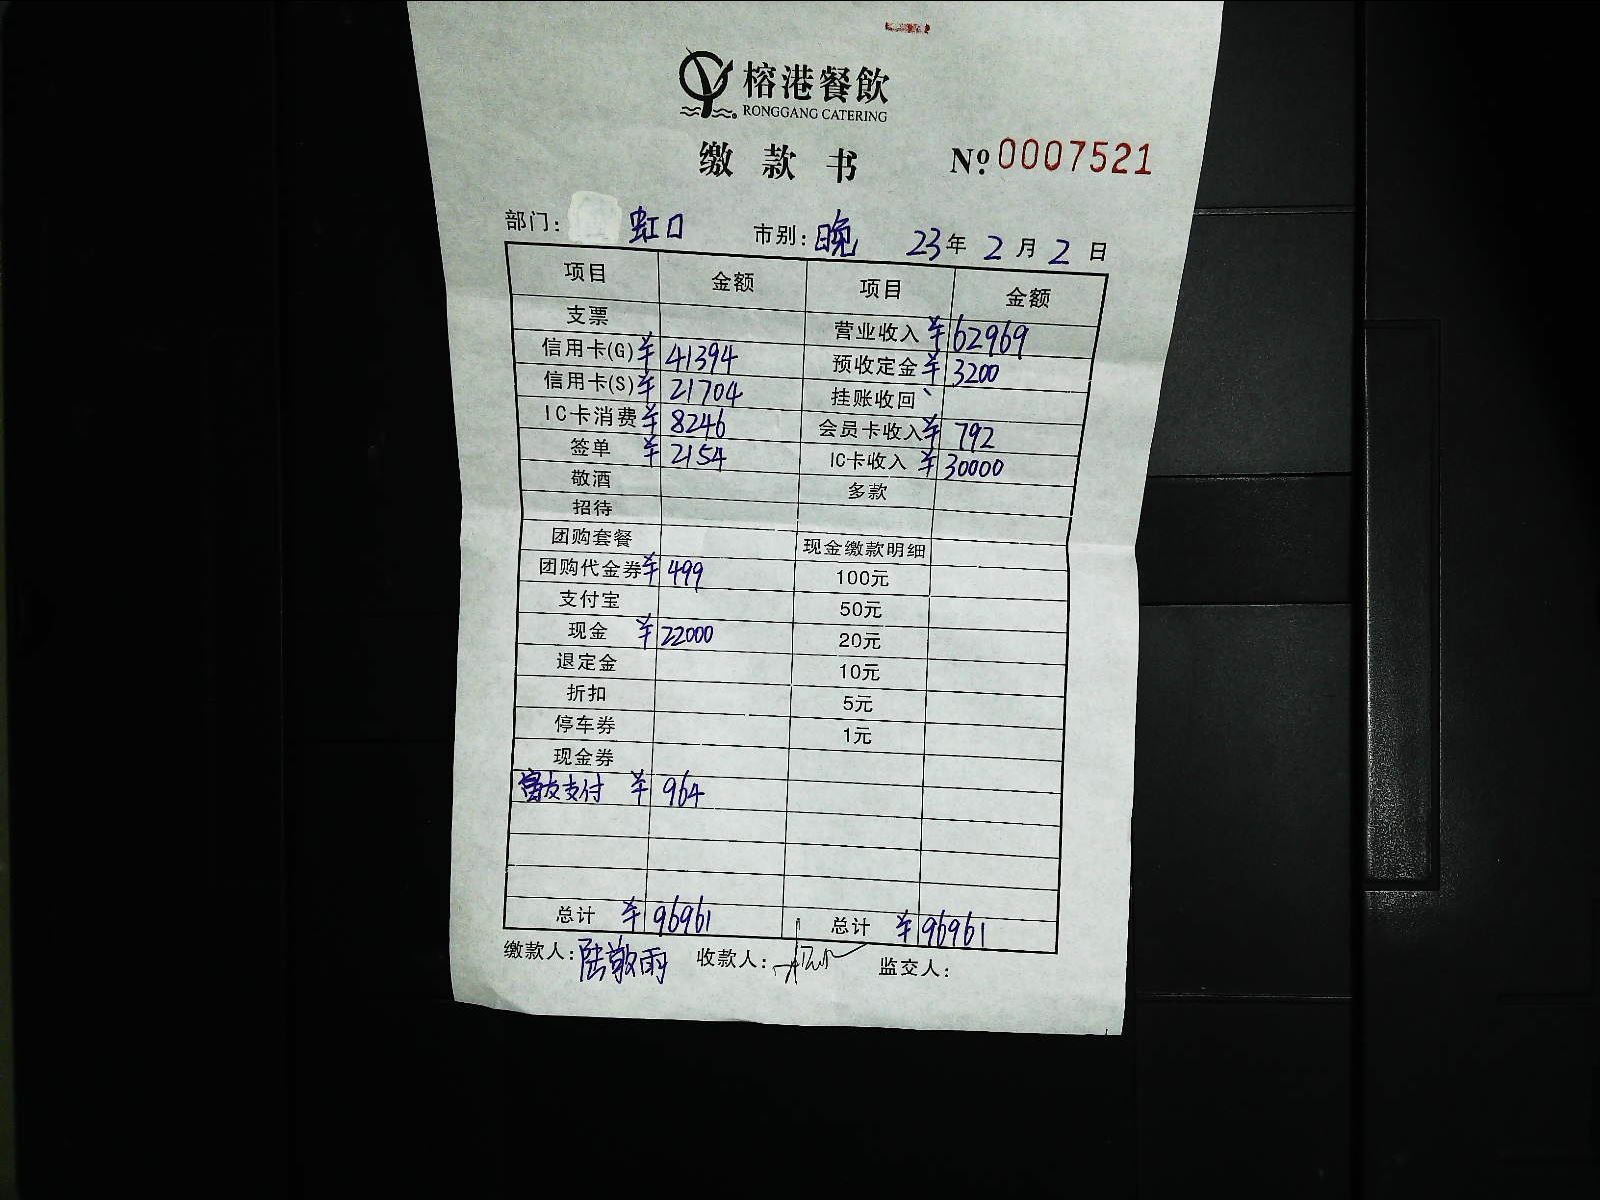 榕港餐飲
RONGGANG CATERING
缴款书 Nº.0007521
部门: 虹口 市别: 晚 23年2月2日
项目 金额 项目 金额
支票 营业收入 ¥62969
信用卡(G) ¥41394 预收定金 ¥3200
信用卡(S) ¥21704 挂账收回
IC卡消费 ¥8246 会员卡收入 ¥792
签单 ¥2154 IC卡收入 ¥30000
敬酒 多款
招待
团购套餐 现金缴款明细
团购代金券 ¥499 100元
支付宝 50元
现金 ¥22000 20元
退定金 10元
折扣 5元
停车券 1元
现金券
富友支付 ¥964
总计 ¥96961 总计 ¥96961
缴款人: 陆敬雨 收款人: 监交人: